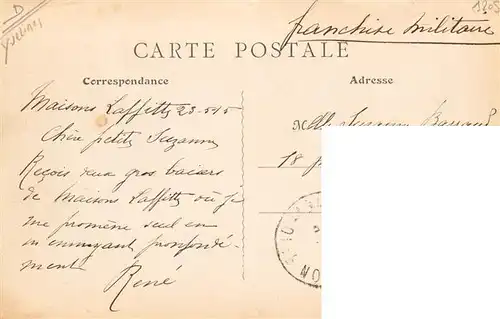 D
Yvelines
1205
franchise militaire
CARTE POSTALE
Correspondance
Adresse
Maisons Laffitte 23-5-15
Chère petite Suzanne
Reçois deux gros baisers
de Maisons Laffitte où je
me promène seul en
m'ennuyant profondé-
ment
René
Mlle Suzanne
18